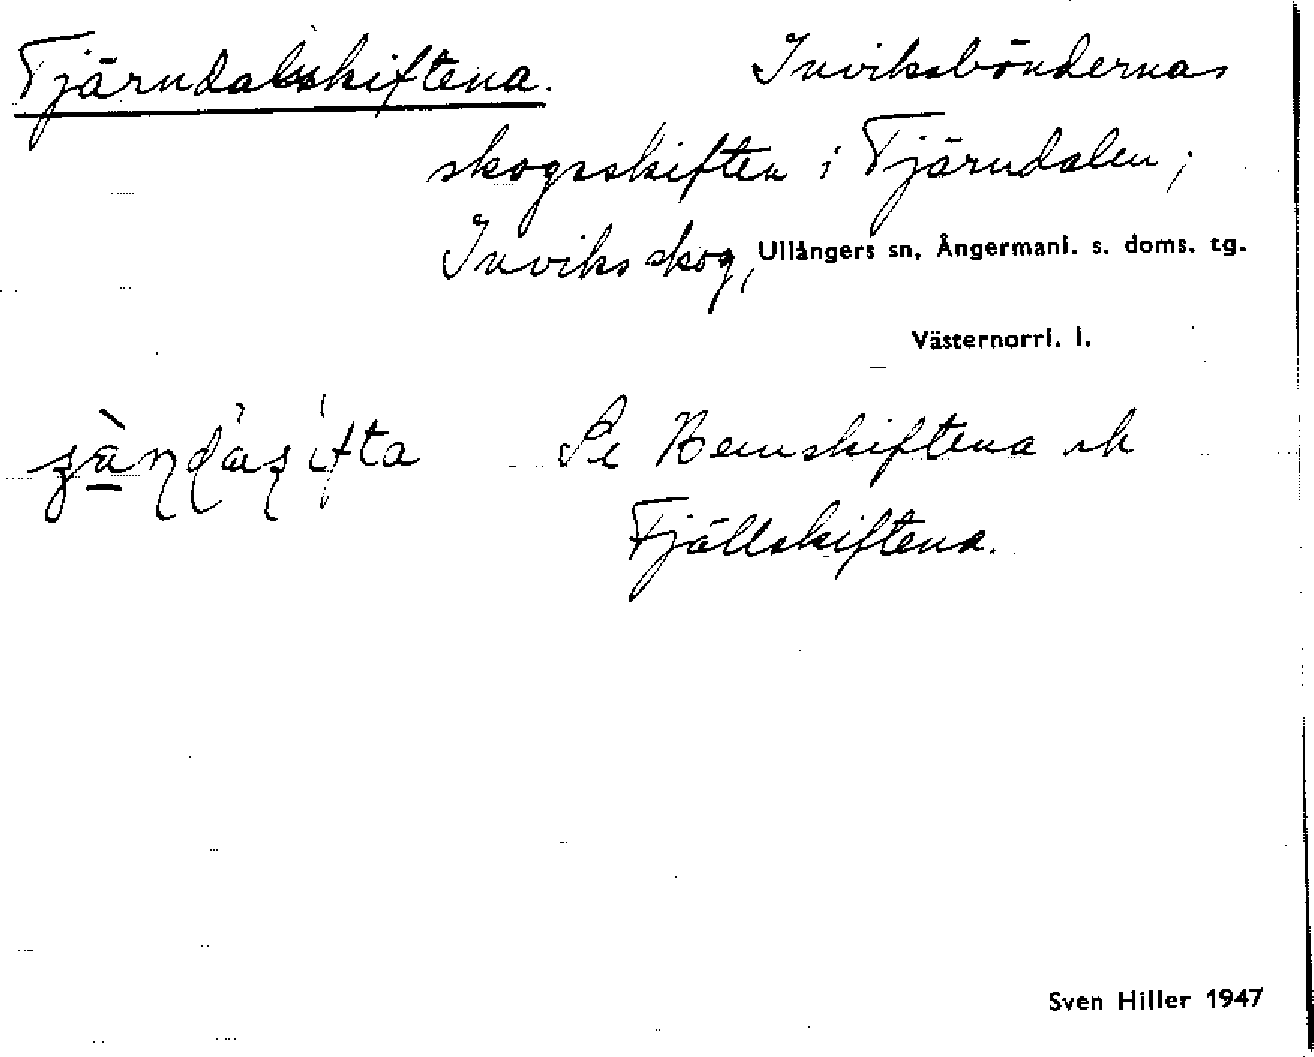 Tjärndalsskiftena. Inviksböndernas
skogsskiften i Tjärndalen;
Inviks skog, Ullångers sn, Ångermanl. s. doms. tg.
Västernorrl. l.
Se Hemskiftena och
Fjällskiftena.
Sven Hiller 1947